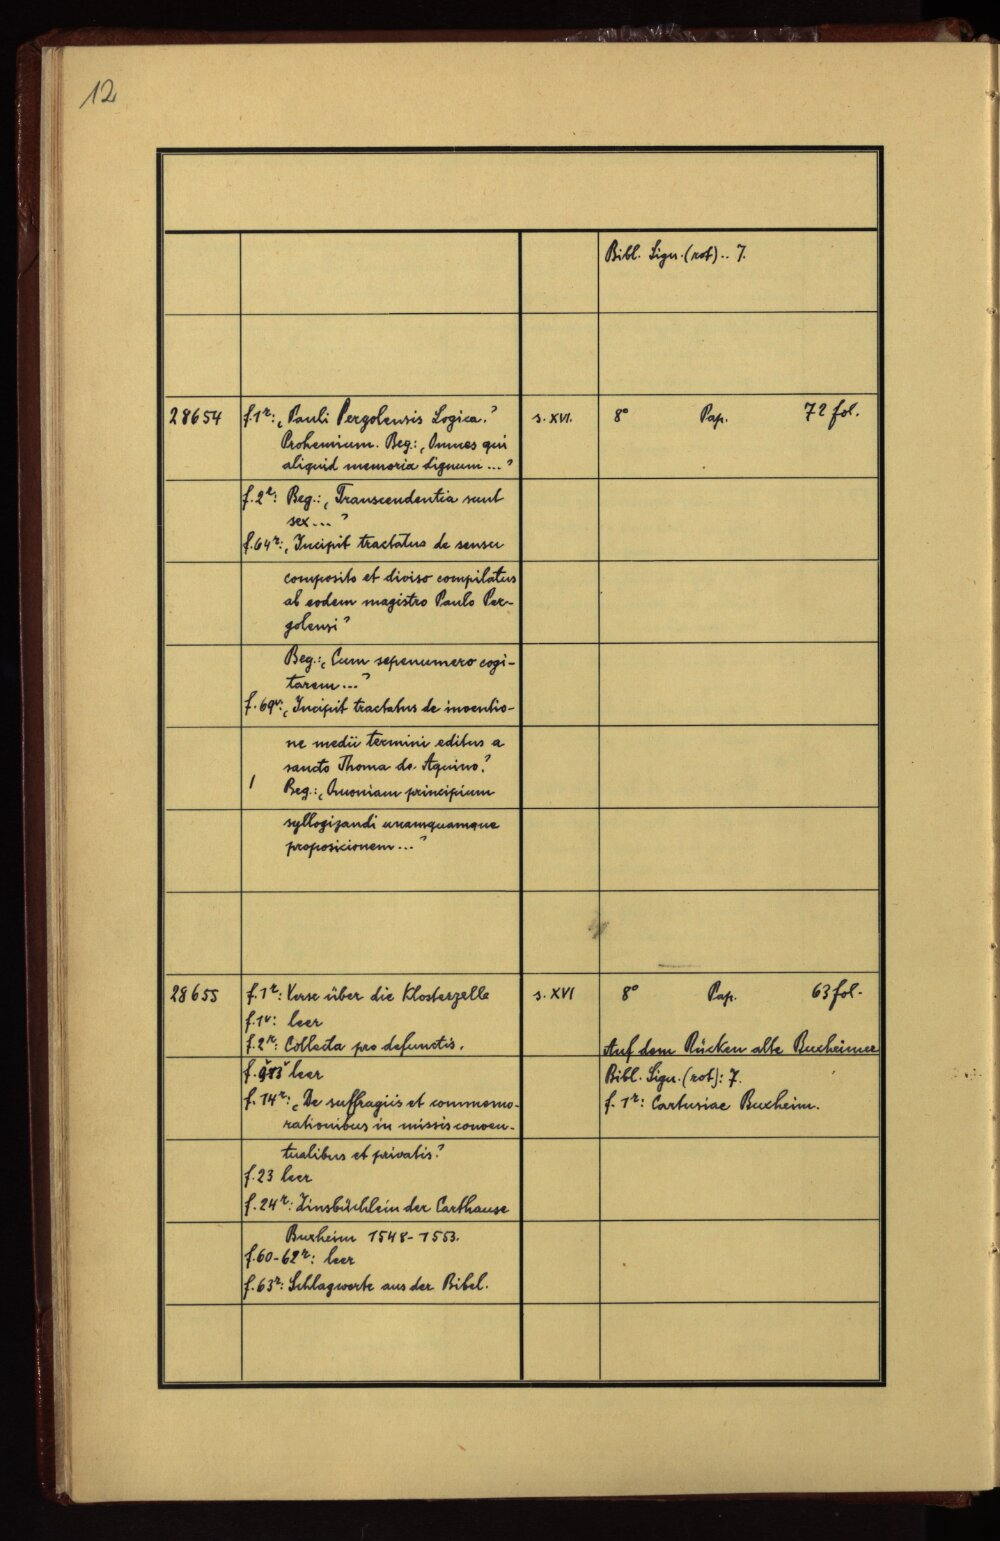 12
Bibl. Sign. (rot).. 7.
28654 f.1r: ‚Pauli Pergolensis Logica.‘ s. XVI. 8° Pap. 72 fol.
Prohemium. Beg.: ‚Omnes qui
aliquid memoria dignum...‘
f.2r: Beg.: ‚Transcendentia sunt
sex...‘
f.64r: ‚Incipit tractatus de sensu
composito et diviso compilatus
ab eodem magistro Paulo Per-
golensi‘
Beg.: ‚Cum sepenumero cogi-
tarem...‘
f.69v: ‚Incipit tractatus de inventio-
ne medii termini editus a
sancto Thoma de Aquino.‘
Beg.: ‚Quoniam principium
syllogizandi unamquamque
proposicionem...‘
28655 f.1r: Verse über die Klosterzelle s. XVI 8° Pap. 63 fol.
f.1v: leer
f.2r: Collecta pro defunctis. Auf dem Rücken alte Buxheimer
f. 13v leer Bibl. Sign. (rot): 7.
f.14r: ‚De suffragiis et commemo- f. 1r: Cartusiae Buxheim.
rationibus in missis conven-
tualibus et privatis.‘
f.23 leer
f.24r: Zinsbüchlein der Carthause
Buxheim 1548-1553.
f.60-62r: leer
f.63r: Schlagworte aus der Bibel.